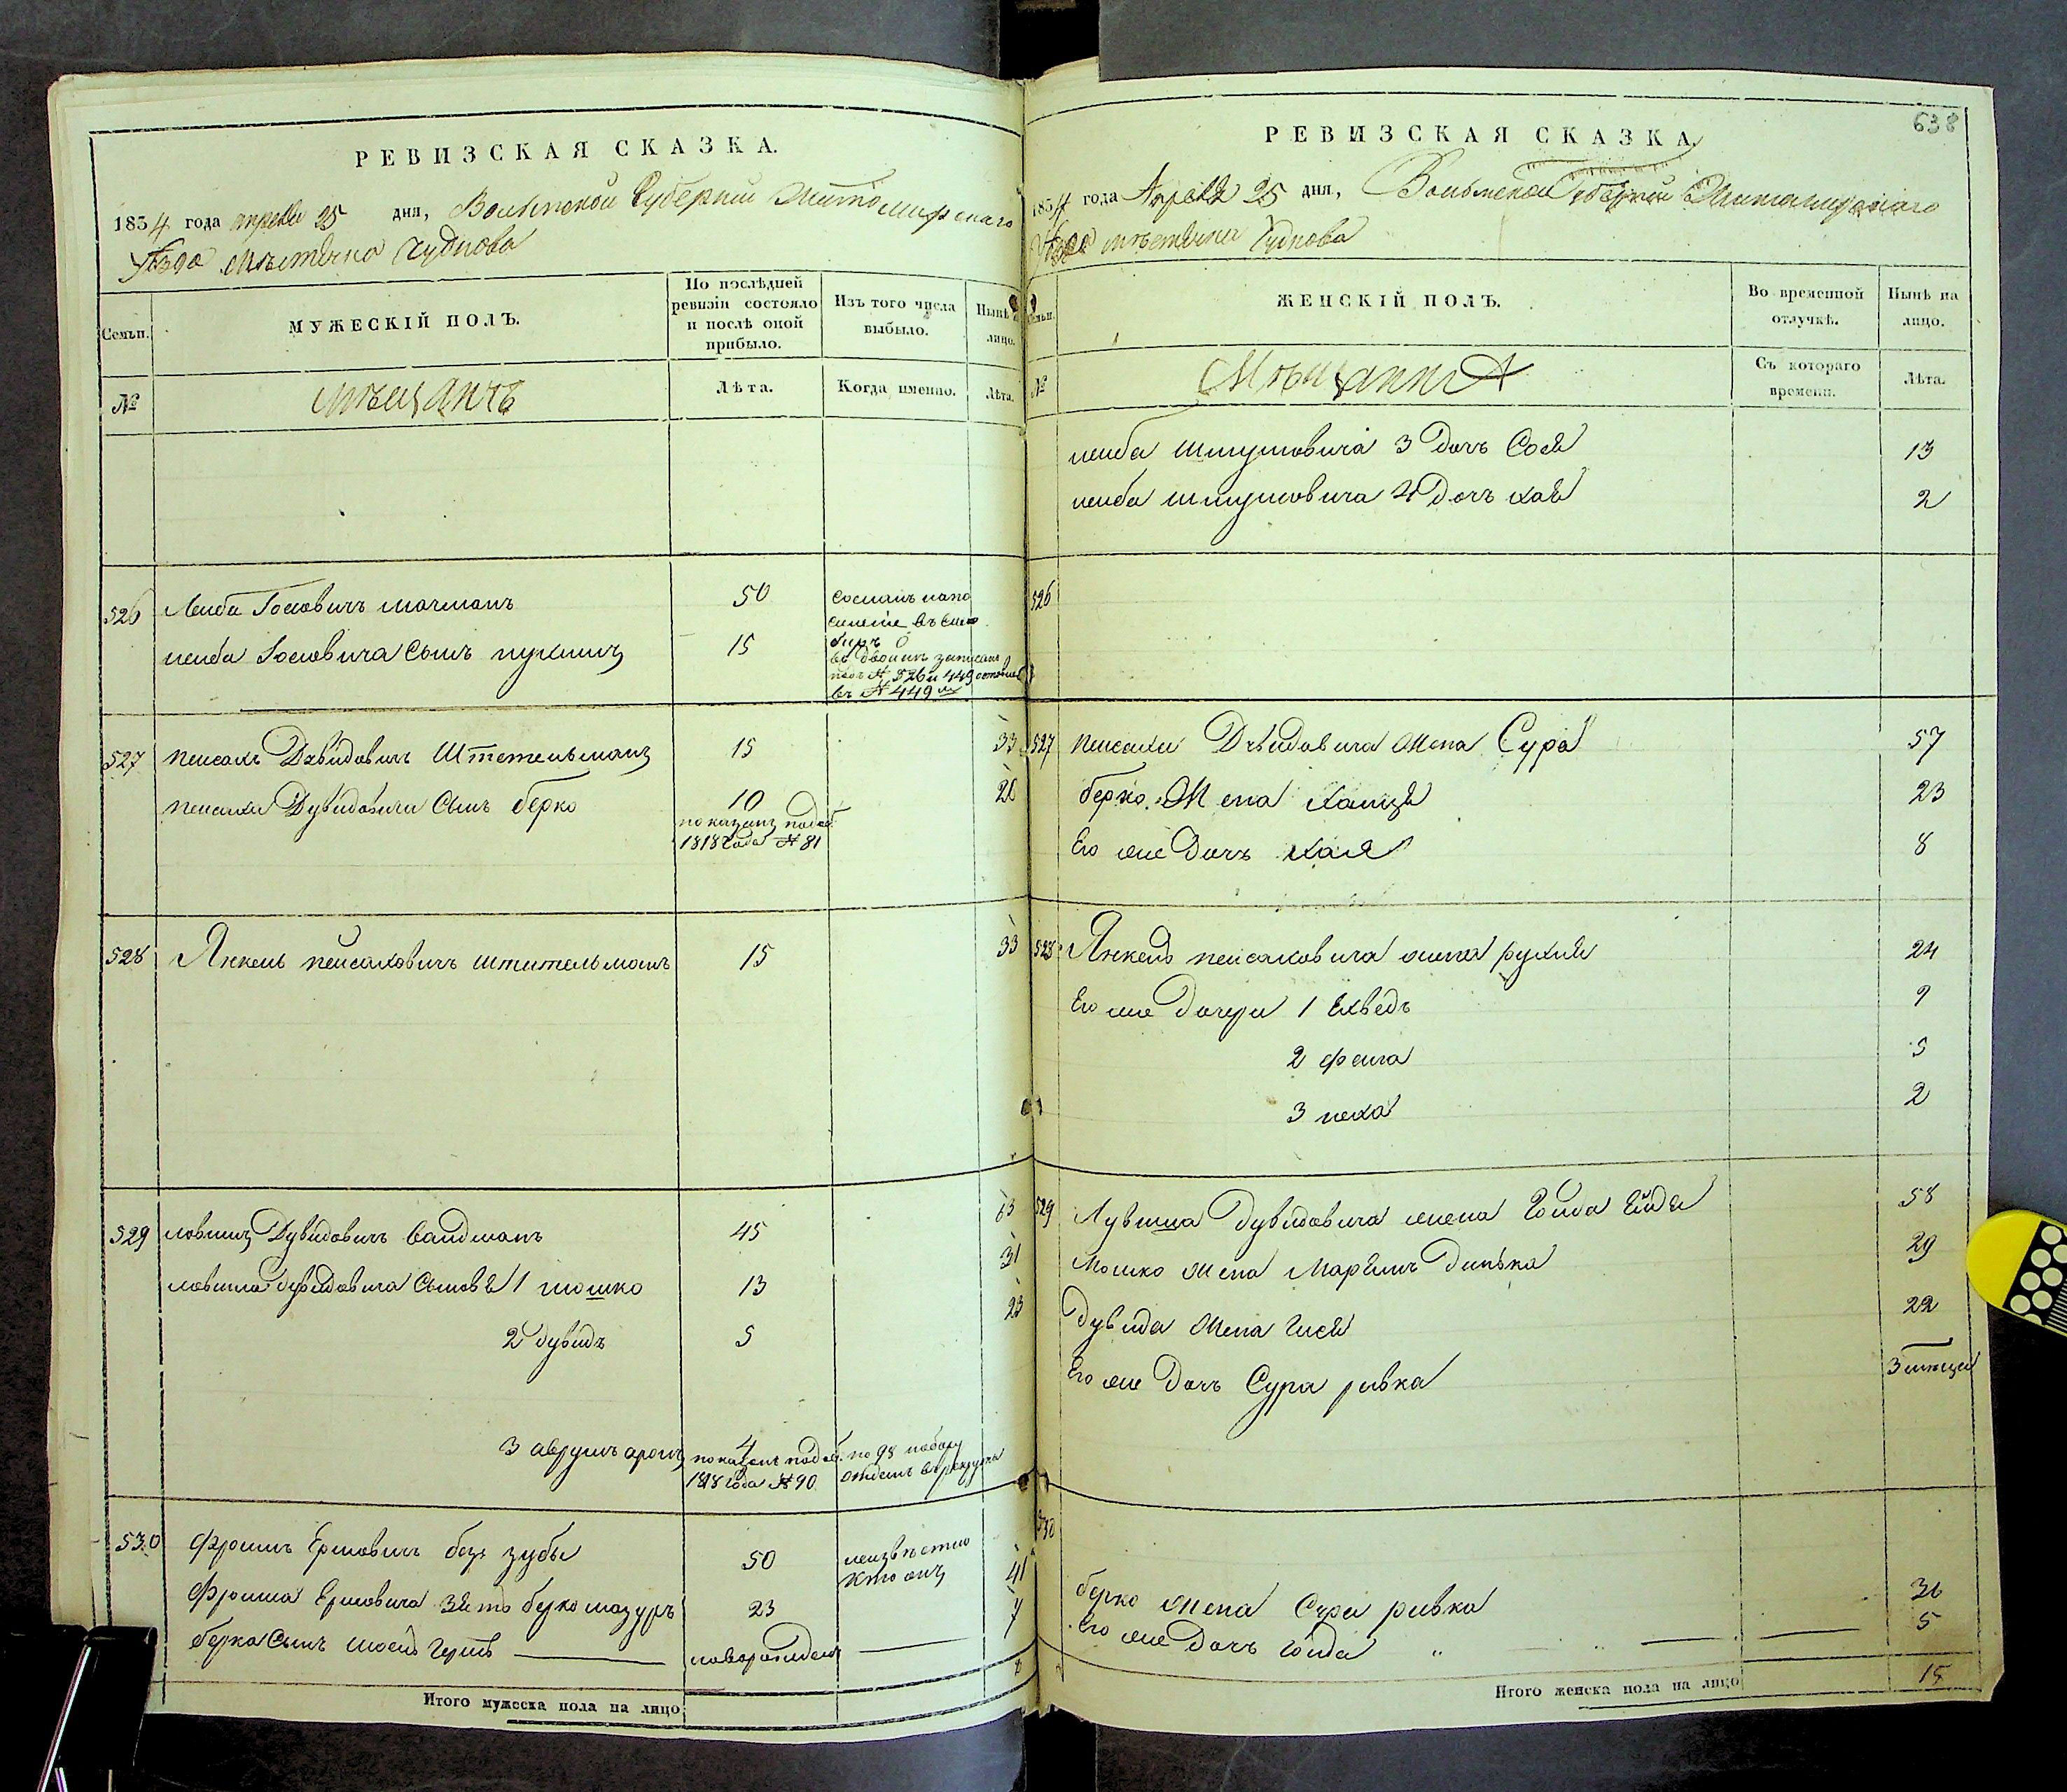 РЕВИЗСКАЯ СКАЗКА.
1834 года апреля 25 дня, Волынской Губернии Житомирскаго
Уѣзда Мѣстечка Чуднова
Семьи.
МУЖЕСКІЙ ПОЛЪ.
По послѣдней ревизіи состояло и послѣ оной прибыло.
Изъ того числа выбыло.
Нынѣ на лицо.
№
мѣщанъ
Лѣта.
Когда именно.
Лѣта.
526 Лейба Іосіовичъ 50
лейба Іосіовича Сынъ 15
въ двойнѣ записанъ
подъ № 526 и 449
въ № 449
527 пейсахъ Дувидовичъ Штетельманъ 15 33
пейсаха Дувидовича Сынъ берко 10 28
показанъ
1818 Года № 81
528 Янкель пейсаховичъ штительманъ 15 33
529 Дувидовичъ вайдманъ 45 63
дувидовича Сыновья 1 мошко 13 31
2 дувидъ 5 23
3 аврумъ аронъ 4
показанъ
1818 года № 90
по 98 набору
отданъ въ рекруты
530 Фроимъ Ершовичъ безъ зубы 50
неизвѣстно
кто онъ
Фроима Ершовича зять берко мазуръ 23 41
берка Сынъ Мосей Гершъ новорожден 7
Итого мужеска пола на лицо
638
РЕВИЗСКАЯ СКАЗКА.
1834 года Апреля 25 дня, Волынской Губернии Житомирскаго
Уѣзда мѣстечка Чуднова
Семьи.
ЖЕНСКІЙ ПОЛЪ.
Во временной отлучкѣ.
Нынѣ на лицо.
№
Мѣщанка
Съ котораго времени.
Лѣта.
лейба шмулювича 3 Дочь Сося 13
лейба шмулювича 4 Дочь хая 2
526
527 пейсаха Дувидовича жена Сура 57
берко жена ханця 23
Его же Дочь хая 8
528 Янкель пейсаховича жена рухля 24
Его же дочери 1 Ехведъ 9
2 фейга 5
3 неха 2
529 Дувидовича жена Гойда Ейдя 58
Мошко жена Марьямъ Динька 29
Дувида жена Гися 22
Его же Дочь Сура ривка 3 мѣсяца
530
берко жена Сура ривка 36
Его же Дочь Гойда 5
Итого женска пола на лицо 15